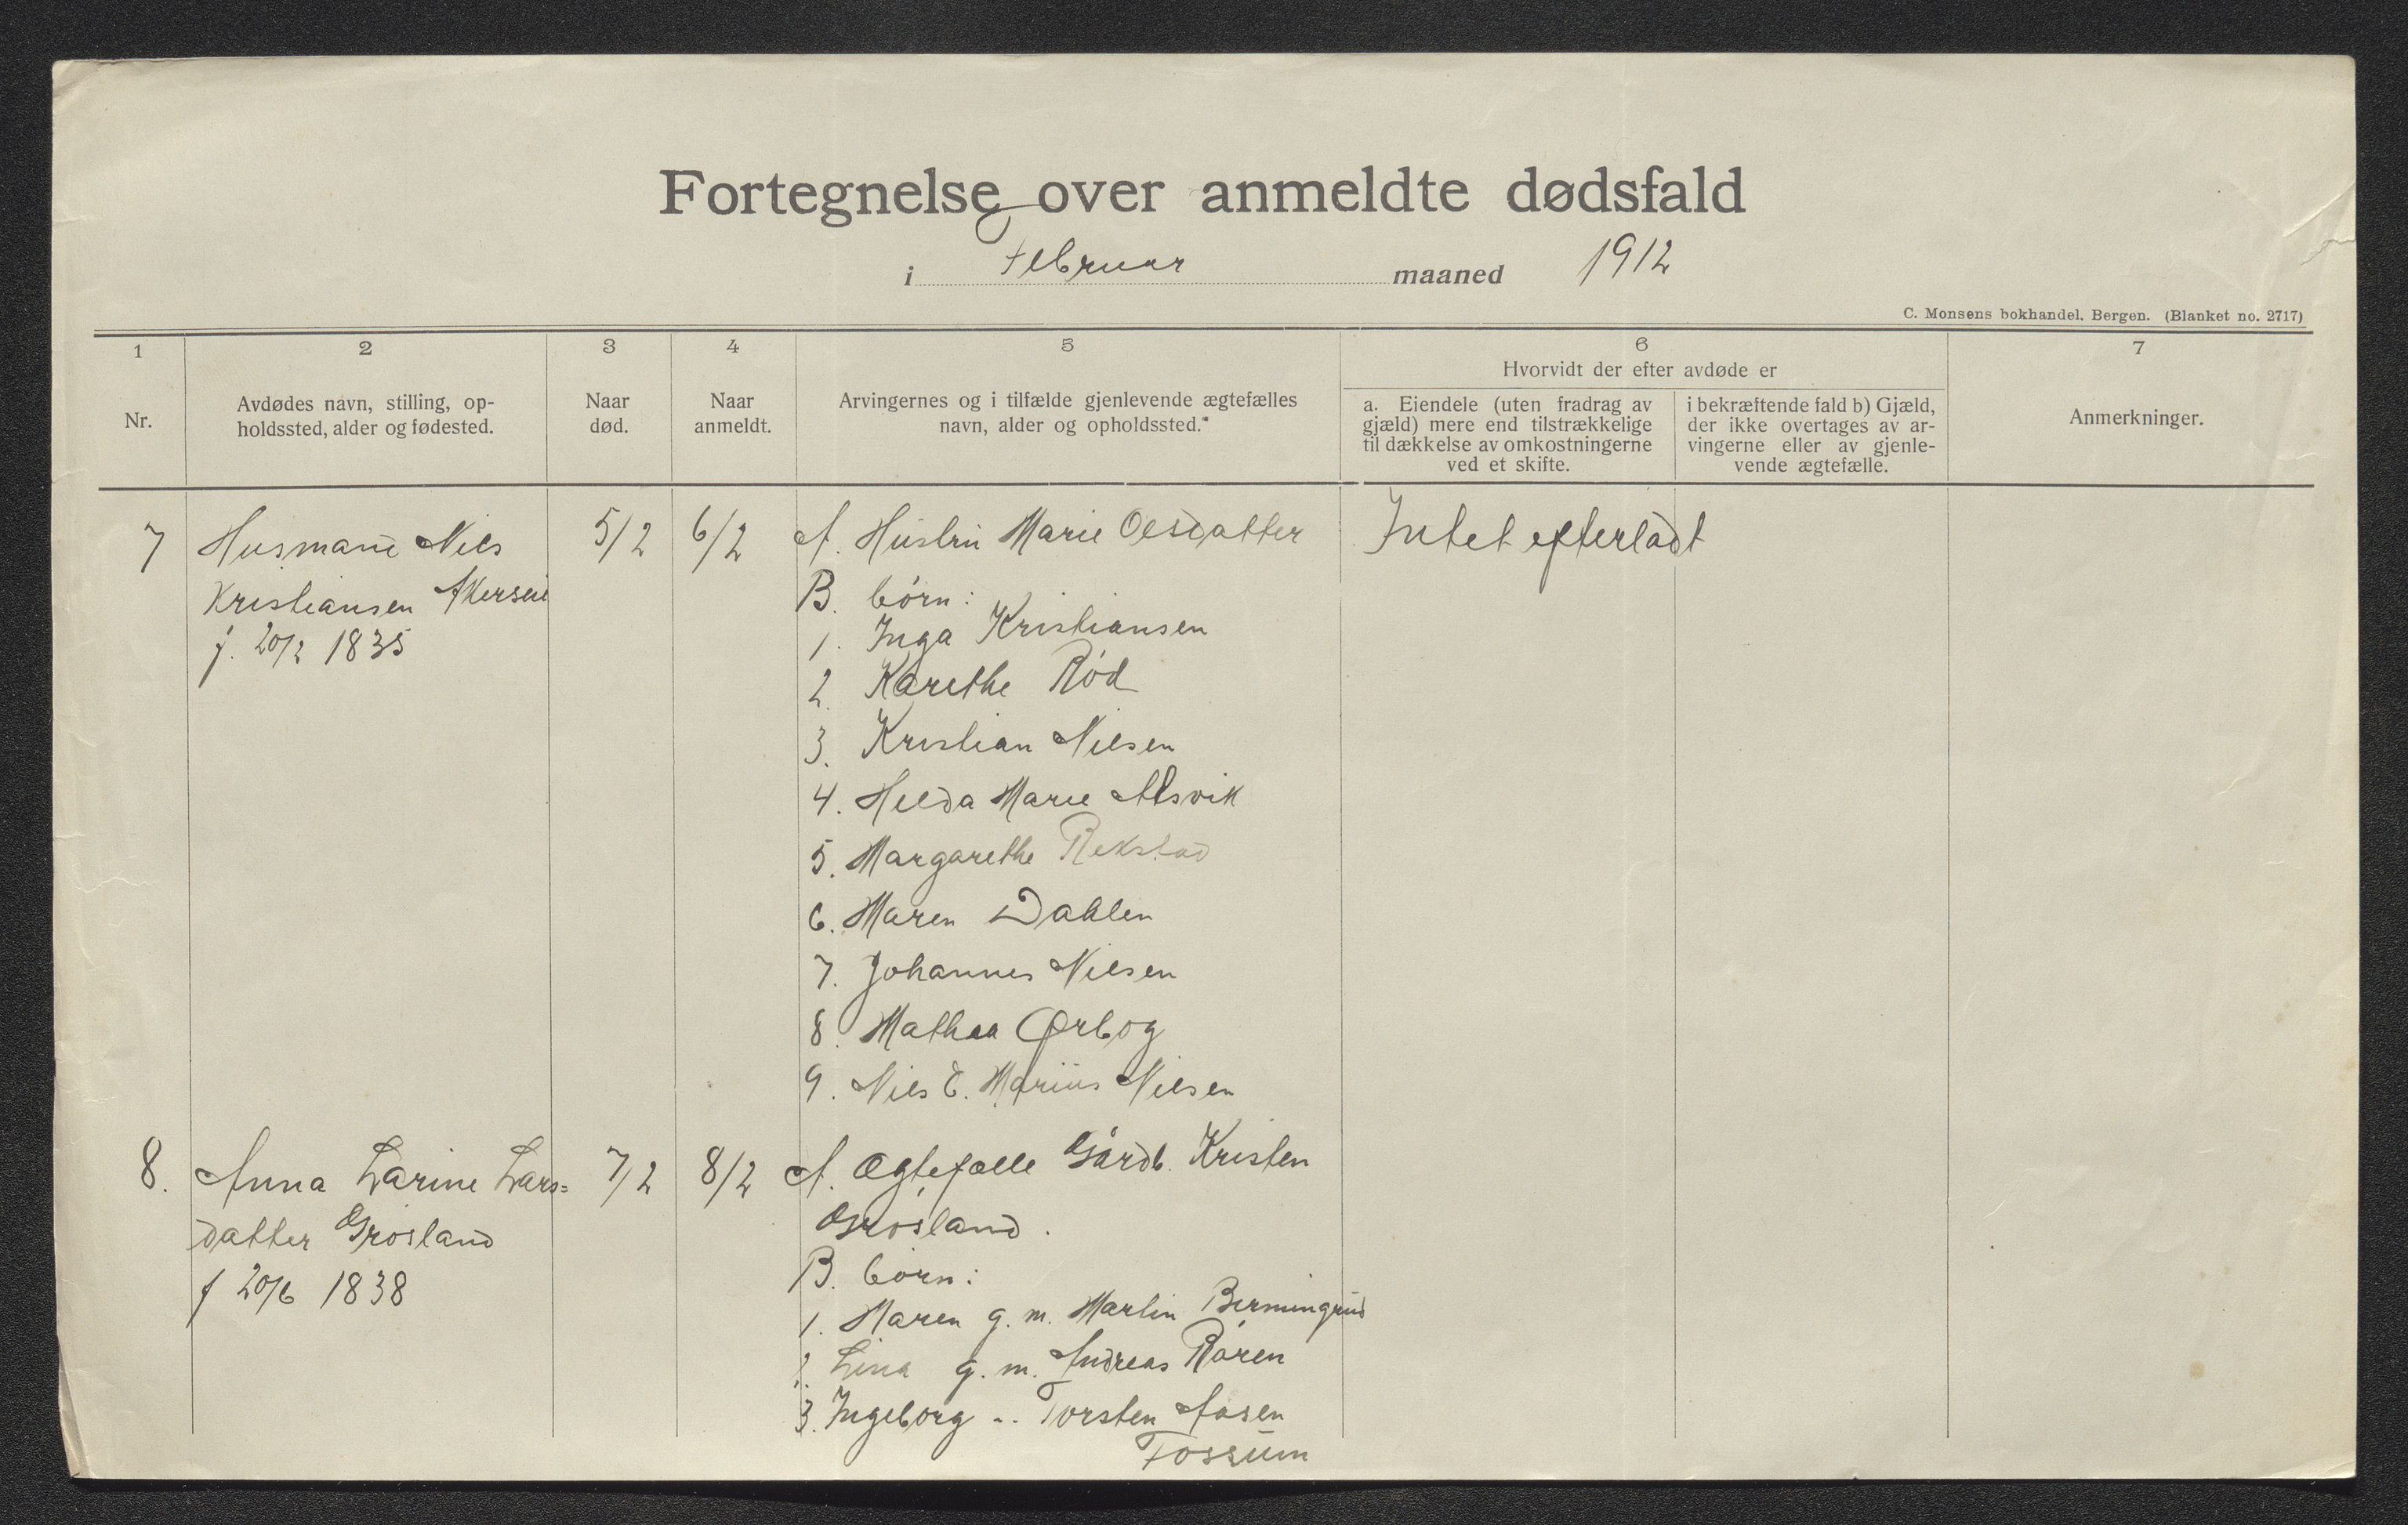 Fortegnelse over anmeldte dødsfald
i Februar maaned 1912
C. Monsens bokhandel, Bergen. (Blanket no. 2717)
1
Nr.
2
Avdødes navn, stilling, op-
holdssted, alder og fødested.
3
Naar
død.
4
Naar
anmeldt.
5
Arvingernes og i tilfælde gjenlevende ægtefælles
navn, alder og opholdssted.*
6
Hvorvidt der efter avdøde er
a. Eiendele (uten fradrag av
gjæld) mere end tilstrækkelige
til dækkelse av omkostningerne
ved et skifte.
i bekræftende fald b) Gjæld,
der ikke overtages av ar-
vingerne eller av gjenle-
vende ægtefælle.
7
Anmerkninger.
7
Husmand Nils
Kristiansen Akerseie
f. 20/2 1835
5/2
6/2
A. Hustru Marie Olsdatter
B. børn:
1. Inga Kristiansen
2. Karethe Rød
3. Kristian Nilsen
4. Hilda Marie Alsvik
5. Margarethe Rekstad
6. Maren Dahlen
7. Johannes Nilsen
8. Mathea Ørbog
9. Nils E. Marius Nilsen
Intet efterladt
8.
Anna Larine Lars=
datter Grosland
f 20/6 1838
7/2
8/2
A. Ægtefælle Gårdb. Kristen
Grosland.
B. børn:
1. Maren g. m. Martin Bermingrud
2. Lina g. m. Andreas Råren
3. Ingeborg - - Torsten Aasen
Fossum